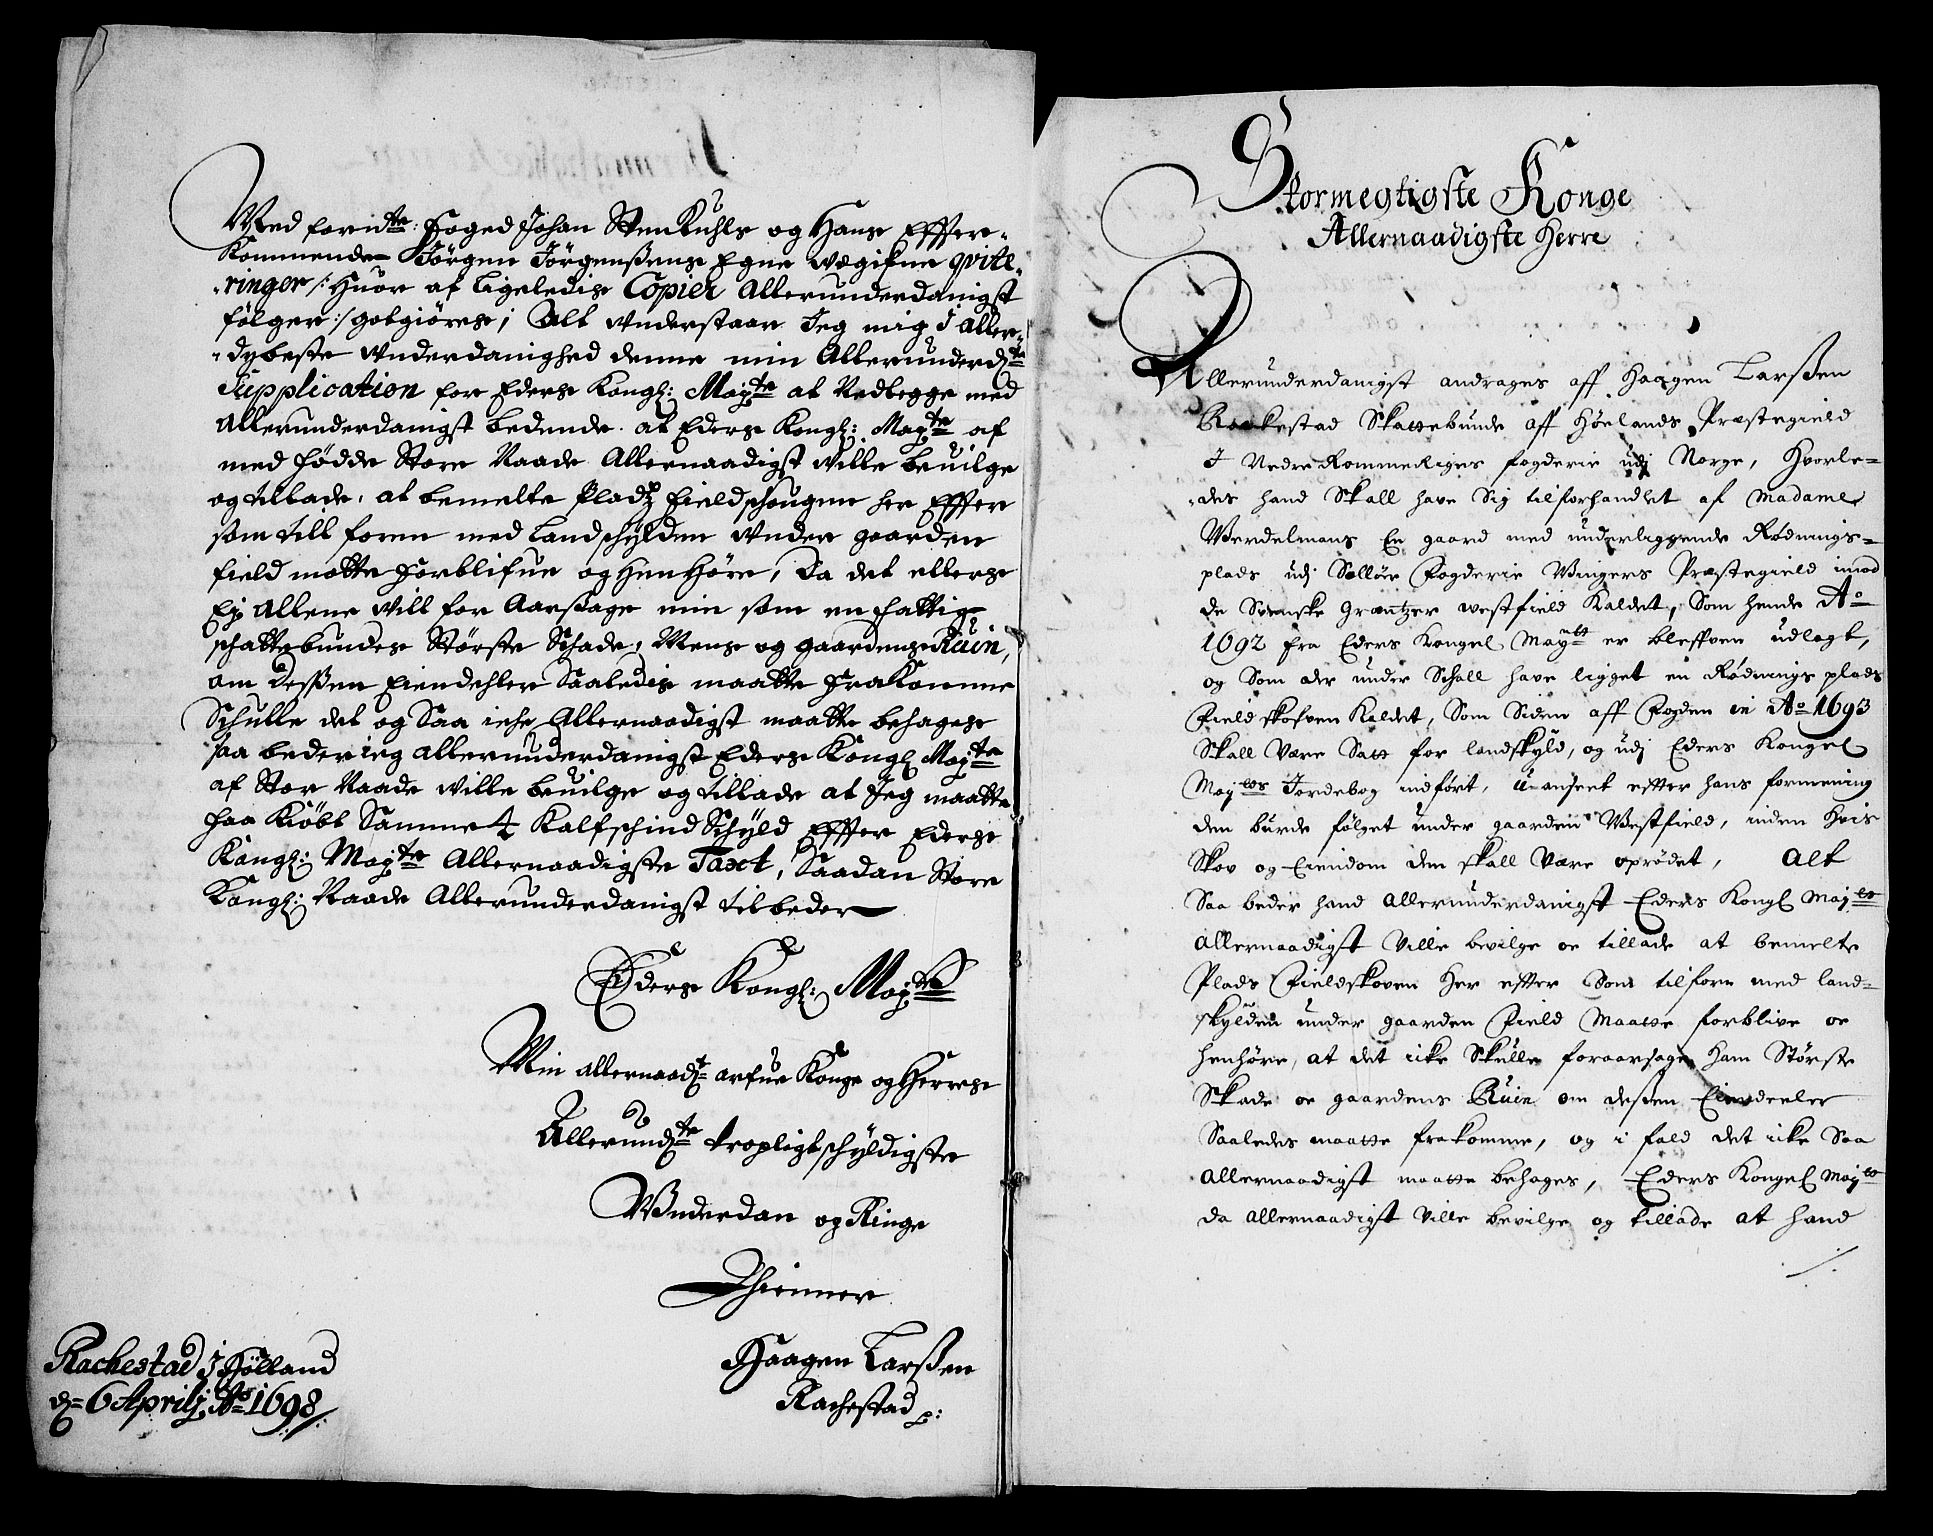 Med forrid^te: Foged Johan Stenkuhls og Hans Effter-
Kommende Jörgen Jörgensens Egne wdgifne qvite-
-ringer /: Huor af ligeledis Copier Allerunderdanigst
fölger :/ gotgiörese; Alt understaar Jeg mig I Aller-
-dybeste underdanighed denne min Allerunderd:^te
Supplication for Eders Kongl: May^te at Nedlegge med
Allerunderdanigst bedende at Eders Kongl: May^te af
med födde Store Naade Allernaadigst wille beuilge
og tillade, at bemelte Pladtz Fieldschougen her Effter
som till foren med Landschylden under gaarden
field motte Forblifue og Henhöre, Da det ellerse
Ej Allene will for Aarsage min som en fattig
schattebundes Störste Schade, Mens og gaardens Ruin,
om Dessen Eiendehler Saaledis maatte FraKomme
Schulle det og Saa iche Allernaadigst maatte behagese
saa beder ieg allerunderdanigst Eders Kongl May^te
af Stor Naade wille beuilge og tillade at Jeg maatte
faa Kiöbt Samme 4 Kalfschind Schyld Effter Eders
Kongl: May^te Allernaadigste Taxt, Saadan Store
Kongl: Naade Allerunderdanigst tilbeder
Eders Kongl: May^te
Min allernaad^t arfue Konge og Herres
Allerund^te tropligtschyldigste
Underdan og Ringe
Thienner
Haagen Larßen
Rachestad
Rachestad J Hölland
d= 6 Aprilj A° 1698

Stormegtigste Konge
Allernaadigste Herre
Allerunderdanigst andrages aff Haagen Larßen
Rakestad Skattebunde aff Höelands Præstegield
I Nedre Rommeriges fogderie udj Norge, Hvorle=
-des hand Skall have Sig tilforhandlet af Madame
Werdelmans En gaard med underliggende Rødnings=
plads udj Sollöer Fogderie Wingers Præstegield imod
de Svenske Grentzer westfield Kaldet, Som hende A°
1692 fra Eders Kongel May^tt er bleffven udlagt,
og Som der under Schall have ligget en Rødnings plads
Fieldskofven Kaldet, Som Siden aff Fogden in A° 1693
Skall Være Satt for landskyld, og udj Eders Kongel
May^ts Jordebog indført, uanseet effter hans formening
den burde følget under gaarden Westfield, inden Hvis
Skov og Eiendom den skall Være oprødet, Alt
Saa beder hand Allerunderdanigst Eders Kongl May^ts
Allernaadigst Ville bevilge oc tillade at bemelte
Plads Fieldskoven Her effter Som tilforn med land=
skylden under gaarden Field Maatte forblive oc
henhöre, at det icke Skulle foraarsage Ham Störste
Skade oc gaardens Ruin om deßen Eiendeeler
Saaledes maatte frakomme, og i fald det icke Saa
Allernaadigst maatte behages, Eders Kongel May^ts
da allernaadigst Ville bevilge og tillade at hand